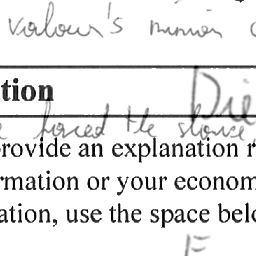 valour's minion
tion Die
faced the slave
provide an explanation r
rmation or your econom
ation, use the space belo
F